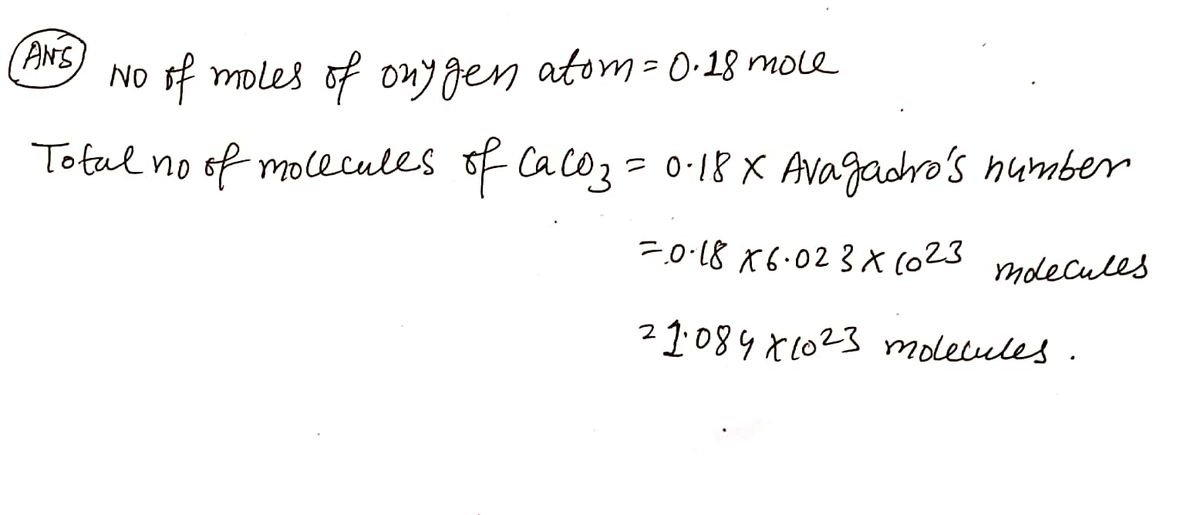 ANS No of moles of oxygen atom = 0.18 mole
Total no of molecules of CaCO3 = 0.18 X Avagadro's number
= 0.18 X 6.023 X 10^23 molecules
= 1.084 X 10^23 molecules.